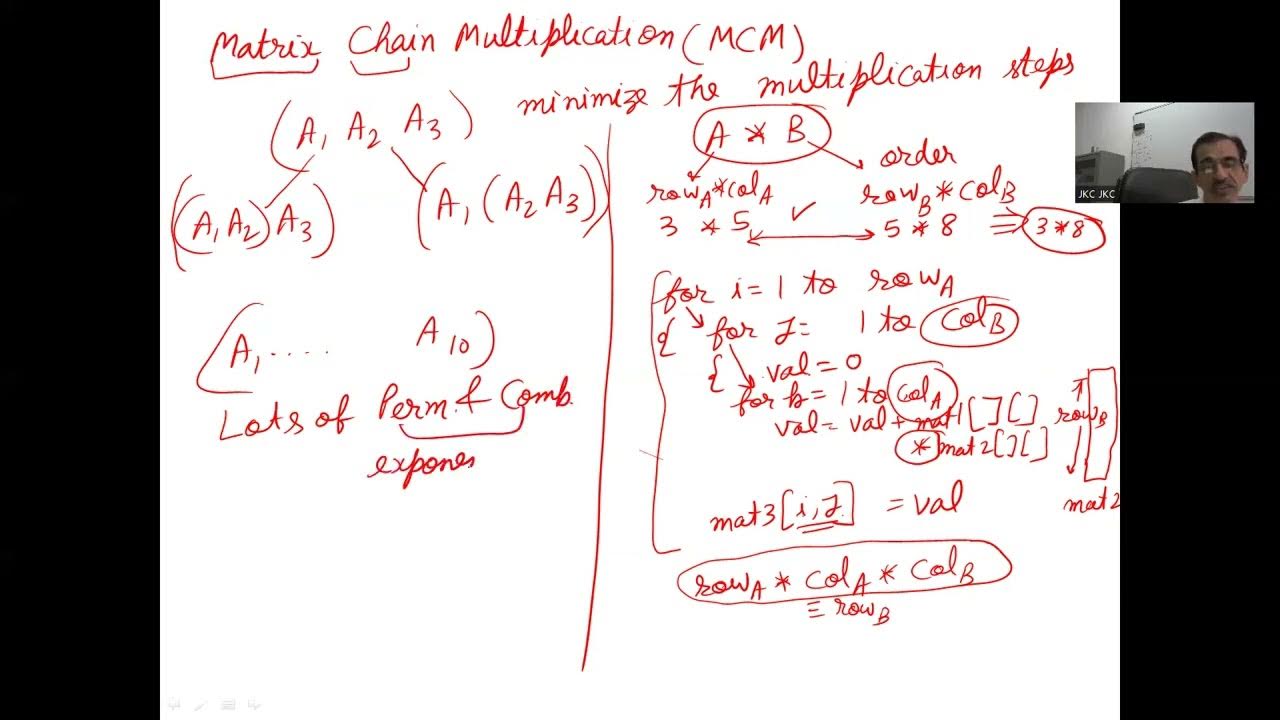 Matrix Chain Multiplication (MCM)
minimize the multiplication steps
(A1 A2 A3)
((A1 A2) A3)
(A1 (A2 A3))
(A1 ..... A10)
Lots of Perm. & Comb.
expones
A * B
order
rowA * colA
rowB * colB
3 * 5 ✓ 5 * 8 ⇒ 3 * 8
for i = 1 to rowA
{ for J = 1 to colB
{ val = 0
for k = 1 to colA
val = val + mat1[][]
* mat2[][]
rowB
mat2
mat3[i,J] = val
rowA * colA * colB
≡ rowB
JKC JKC